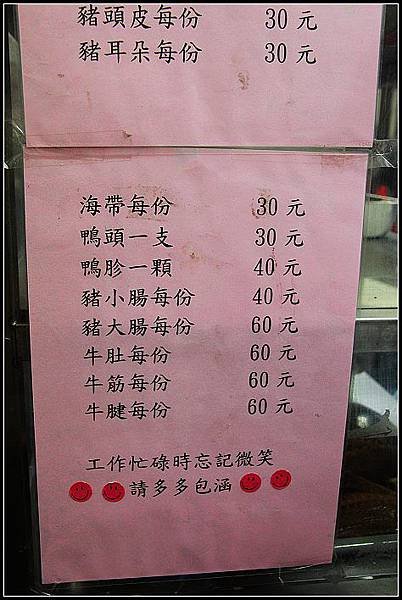 豬頭皮每份 30 元
豬耳朵每份 30 元
海帶每份 30 元
鴨頭一支 30 元
鴨胗一顆 40 元
豬小腸每份 40 元
豬大腸每份 60 元
牛肚每份 60 元
牛筋每份 60 元
牛腱每份 60 元
工作忙碌時忘記微笑
請多多包涵